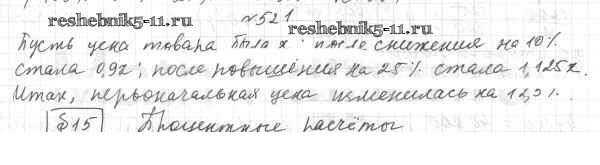 №521
reshebnik5-11.ru
reshebnik5-11.ru
Пусть цена товара была x; после снижения на 10%
стала 0,9x; после повышения на 25% стала 1,125x.
Итак, первоначальная цена изменилась на 12,5%.
§15 Процентные расчёты